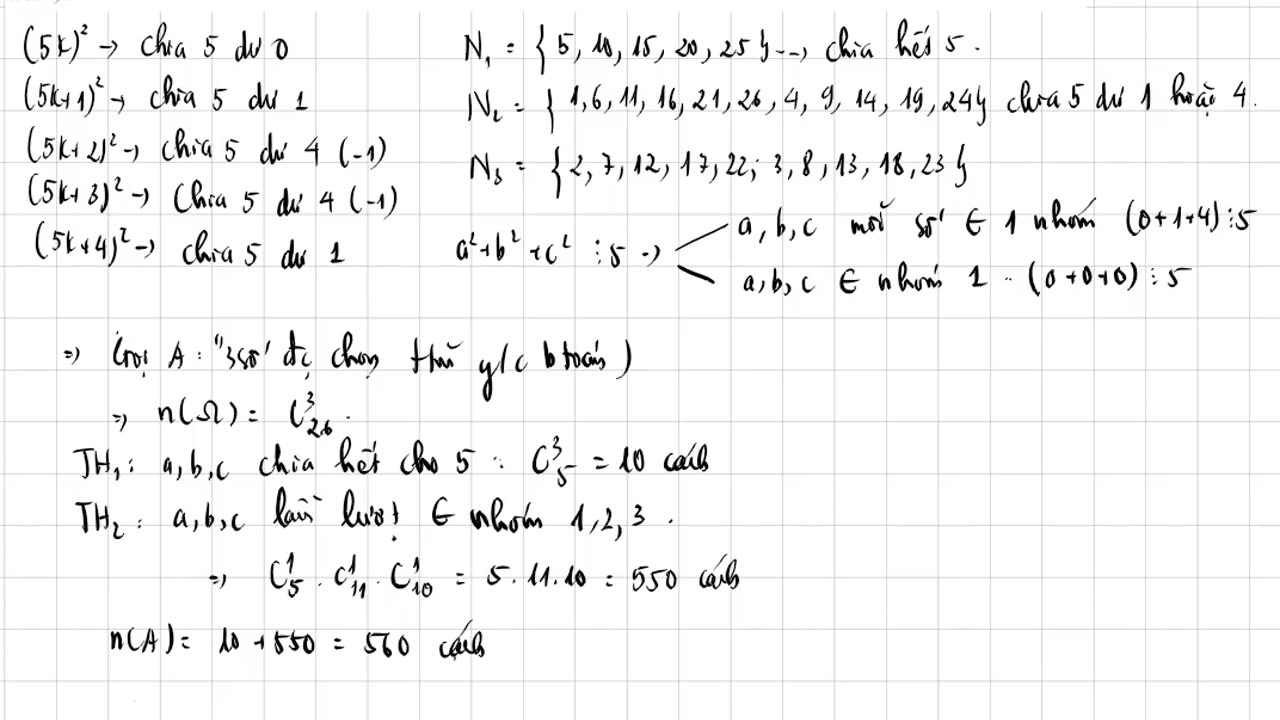 (5k)² → chia 5 dư 0
(5k+1)² → chia 5 dư 1
(5k+2)² → chia 5 dư 4 (-1)
(5k+3)² → Chia 5 dư 4 (-1)
(5k+4)² → chia 5 dư 1
N₁ = { 5, 10, 15, 20, 25 } --→ chia hết 5.
N₂ = { 1, 6, 11, 16, 21, 26, 4, 9, 14, 19, 24 } chia 5 dư 1 hoặc 4.
N₃ = { 2, 7, 12, 17, 22; 3, 8, 13, 18, 23 }
a² + b² + c² ⋮ 5 →
a, b, c mỗi số ∈ 1 nhóm (0+1+4) ⋮ 5
a, b, c ∈ nhóm 1 .. (0+0+0) ⋮ 5
⇒ Gọi A : "3 số đc chọn thỏa y/c b toán)
⇒ n(Ω) = C³₂₆.
TH₁ : a, b, c chia hết cho 5 : C³₅ = 10 cách
TH₂ : a, b, c lần lượt ∈ nhóm 1, 2, 3 .
⇒ C¹₅ . C¹₁₁ . C¹₁₀ = 5. 11. 10 = 550 cách
n(A) = 10 + 550 = 560 cách